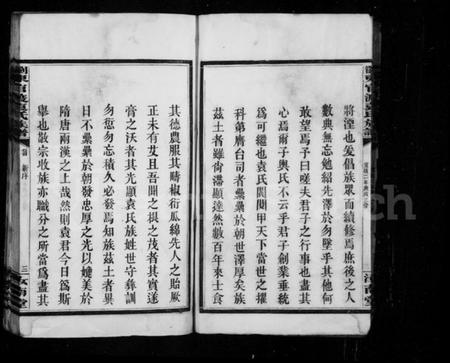 將湮也爰倡族眾而續修焉庶後之人
數典無忘勉紹先澤於勿墜乎其他何
敢望焉予曰嗟夫君子之行事也盡其
心焉爾子輿氏不云乎君子創業垂統
為可繼也袁氏閥閱甲天下當世之擢
科第膺台司者纍纍於朝世澤厚矣族
茲土者雖尚 顯達然數百年來士食
其德農服其疇椒衍瓜綿先人之貽厥
正未有艾且吾聞之根之茂者其實遂
膏之沃者其光顯袁氏族姓世守彝訓
勿怠勿忘積久必發焉知族茲土者異
日不纍纍於朝發忠厚之光以媲美於
隋唐兩漢之上哉然則袁君今日為斯
舉也敬宗收族亦職分之所當為盡其
瀏東官渡袁氏族譜
新序
三
汝南堂